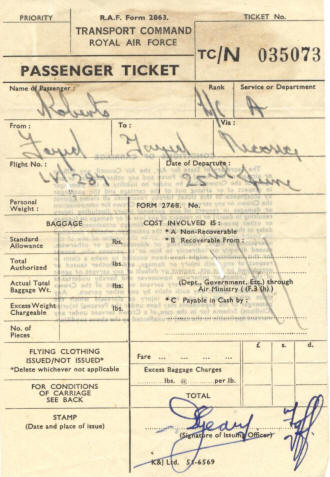 PRIORITY
R.A.F. Form 2863.
TRANSPORT COMMAND
ROYAL AIR FORCE
TICKET No.
TC/N 035073
PASSENGER TICKET
Name of Passenger: Rank Service or Department
Roberts A
From: To: Via:
Fayid Fayid
Flight No.: Date of Departure:
25th June
Personal
Weight:
FORM 2768. No.
BAGGAGE
Standard
Allowance lbs.
Total
Authorized lbs.
Actual Total
Baggage Wt. lbs.
Excess Weight
Chargeable lbs.
No. of
Pieces
COST INVOLVED IS:
*A Non-Recoverable
*B Recoverable From:
(Dept., Government, Etc.) through
Air Ministry (F.3 (h).)
*C Payable in Cash by:
FLYING CLOTHING
ISSUED/NOT ISSUED*
*Delete whichever not applicable
FOR CONDITIONS
OF CARRIAGE
SEE BACK
STAMP
(Date and place of issue)
£ s. d.
Fare ... ... ... ...
Excess Baggage Charges
...... lbs. @ ...... per lb.
TOTAL
(Signature of Issuing Officer)
K&J Ltd. 51-6569